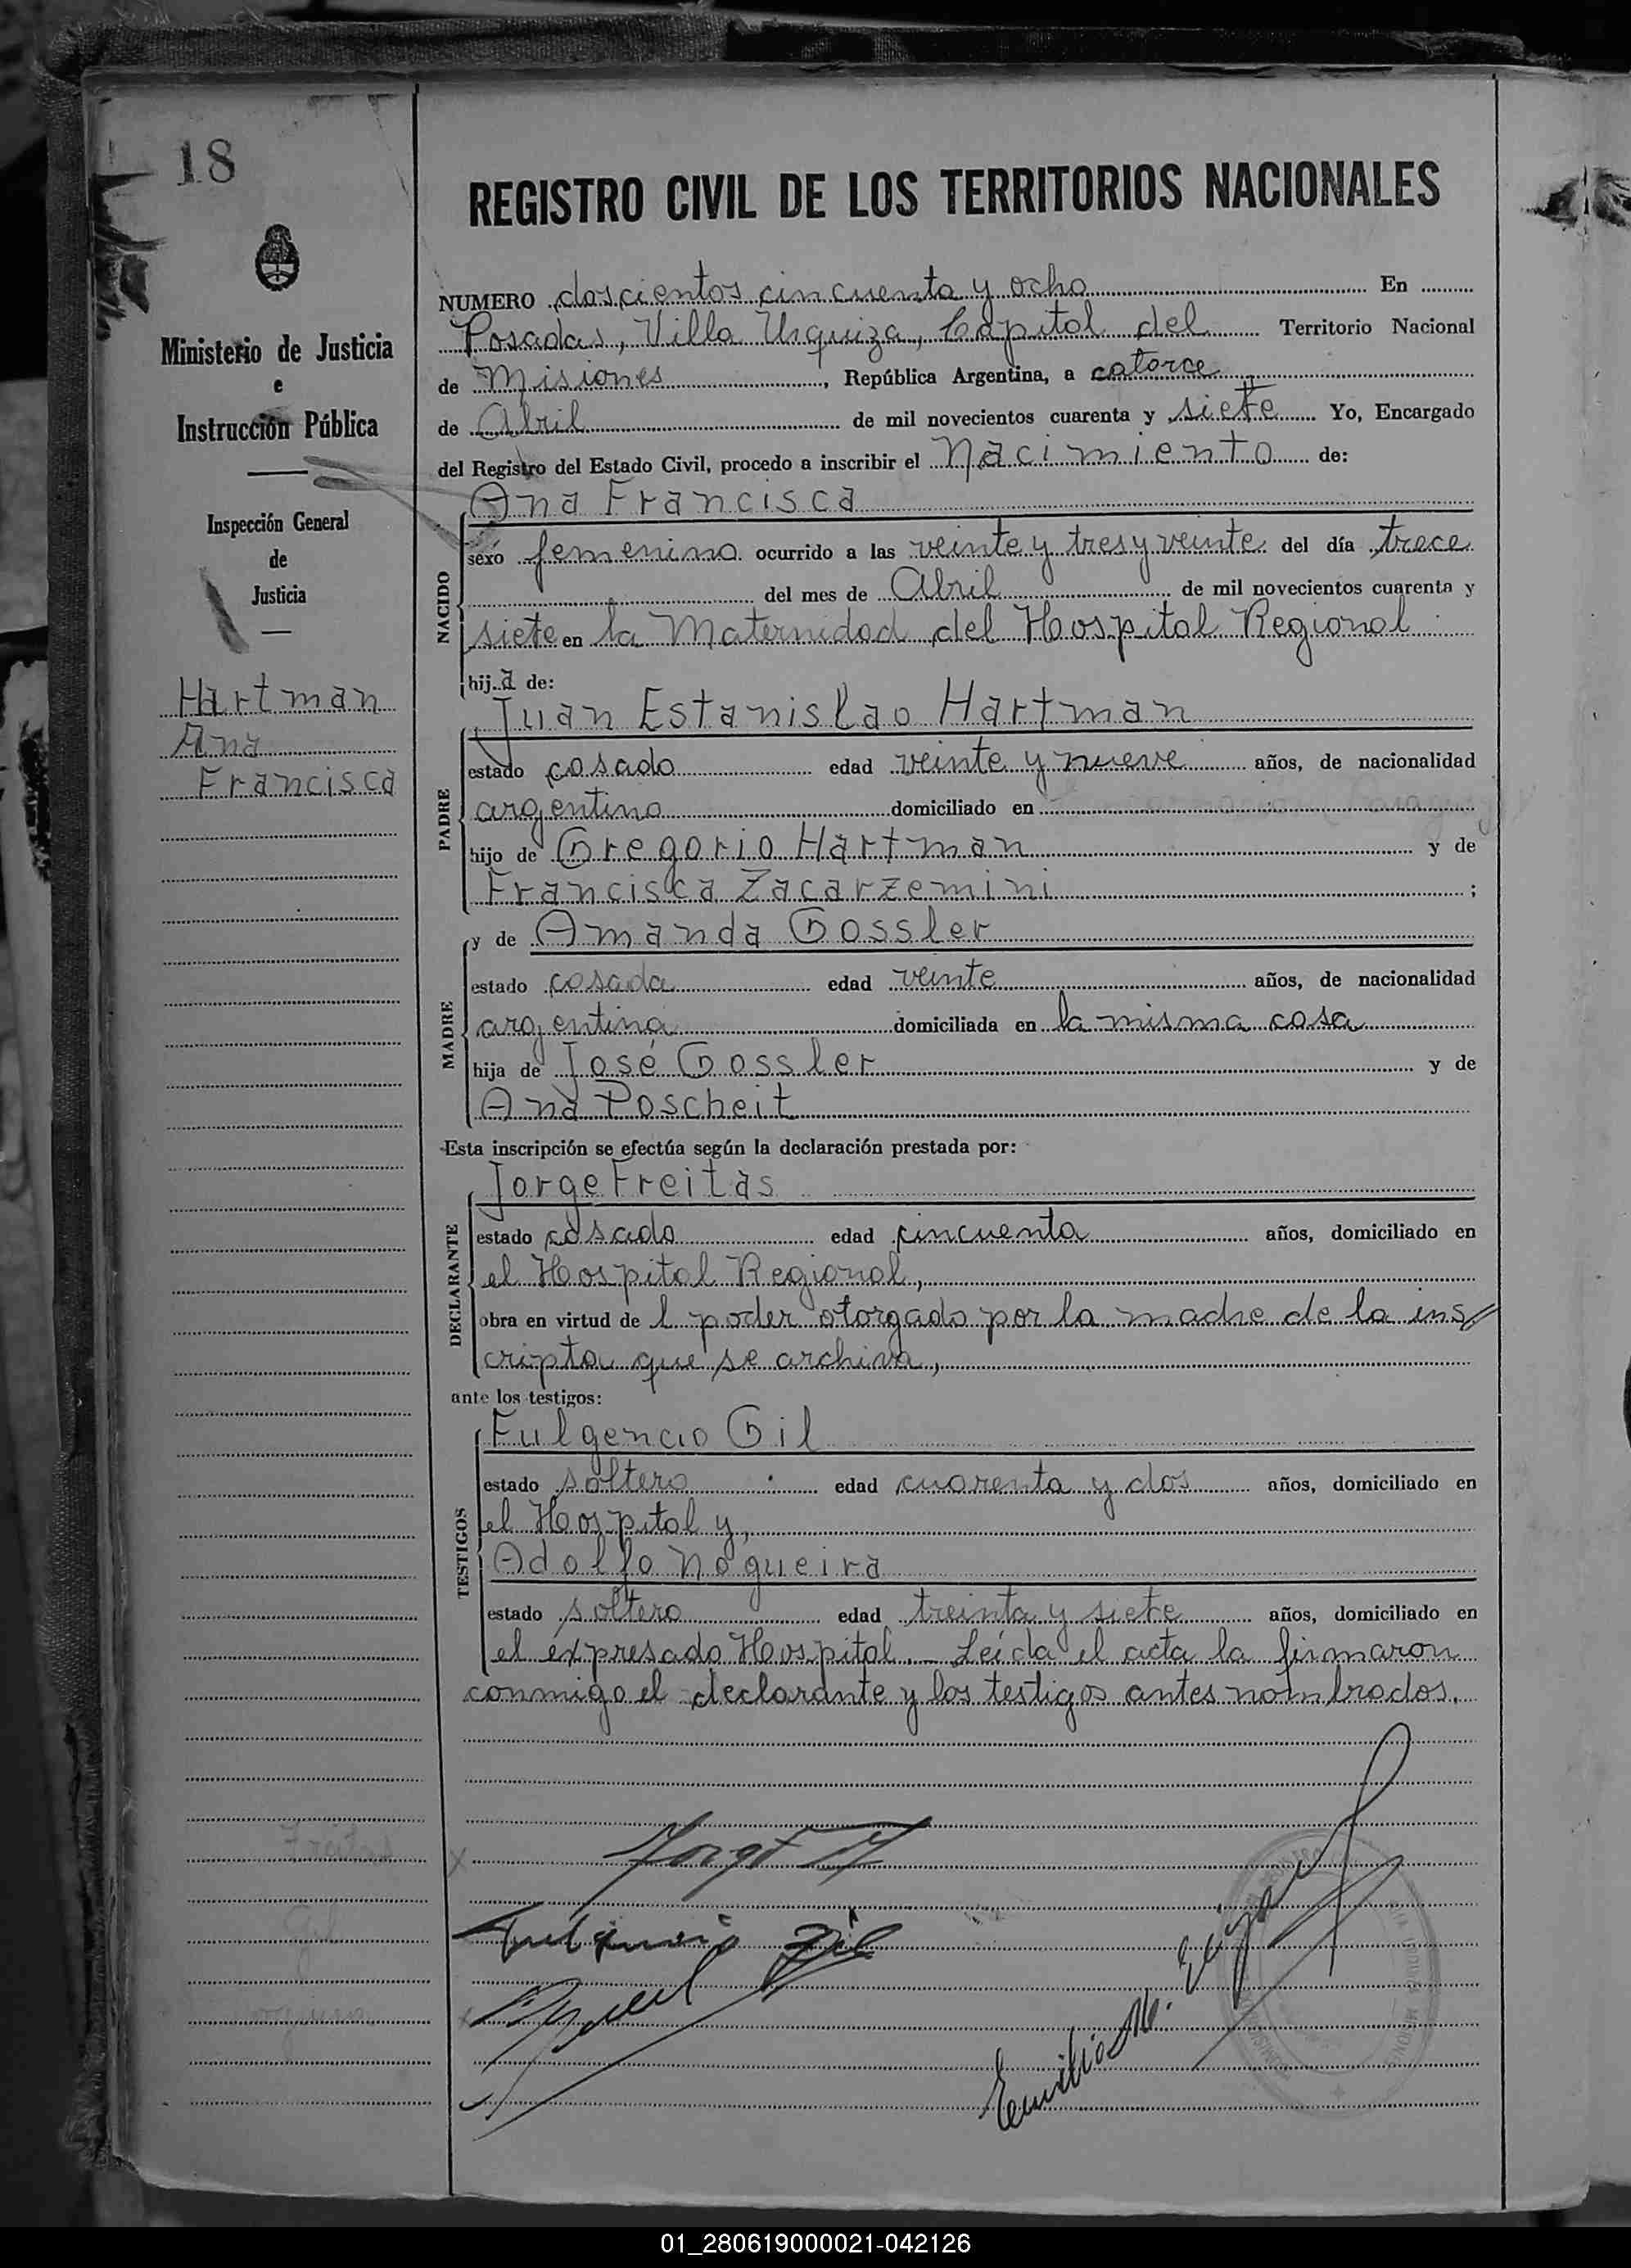 18
REGISTRO CIVIL DE LOS TERRITORIOS NACIONALES
Ministerio de Justicia
e
Instrucción Pública
Inspección General
de
Justicia
Hartman
Ana
Francisca
NUMERO doscientos cincuenta y ocho En
Posadas, Villa Urquiza, Capital del Territorio Nacional
de Misiones, República Argentina, a catorce
de Abril de mil novecientos cuarenta y siete Yo, Encargado
del Registro del Estado Civil, procedo a inscribir el Nacimiento de:
NACIDO
Ana Francisca
sexo femenino ocurrido a las veinte y tres y veinte del día trece
del mes de Abril de mil novecientos cuarenta y
siete en la Maternidad del Hospital Regional
hija de:
PADRE
Juan Estanislao Hartman
estado casado edad veinte y nueve años, de nacionalidad
argentino domiciliado en
hijo de Gregorio Hartman y de
Francisca Zacarzemini;
MADRE
y de Amanda Gossler
estado casada edad veinte años, de nacionalidad
argentina domiciliada en la misma casa
hija de José Gossler y de
Ana Poscheit
Esta inscripción se efectúa según la declaración prestada por:
DECLARANTE
Jorge Freitas
estado casado edad cincuenta años, domiciliado en
el Hospital Regional,
obra en virtud de l poder otorgado por la madre de la ins//
cripta que se archiva,
ante los testigos:
TESTIGOS
Fulgencio Gil
estado soltero edad cuarenta y dos años, domiciliado en
el Hospital y,
Adolfo Nogueira
estado soltero edad treinta y siete años, domiciliado en
el expresado Hospital.- Leída el acta la firmaron
conmigo el declarante y los testigos antes nombrados.
Freitas
Gil
Fulgencio Gil
Emilio M.
01_280619000021-042126